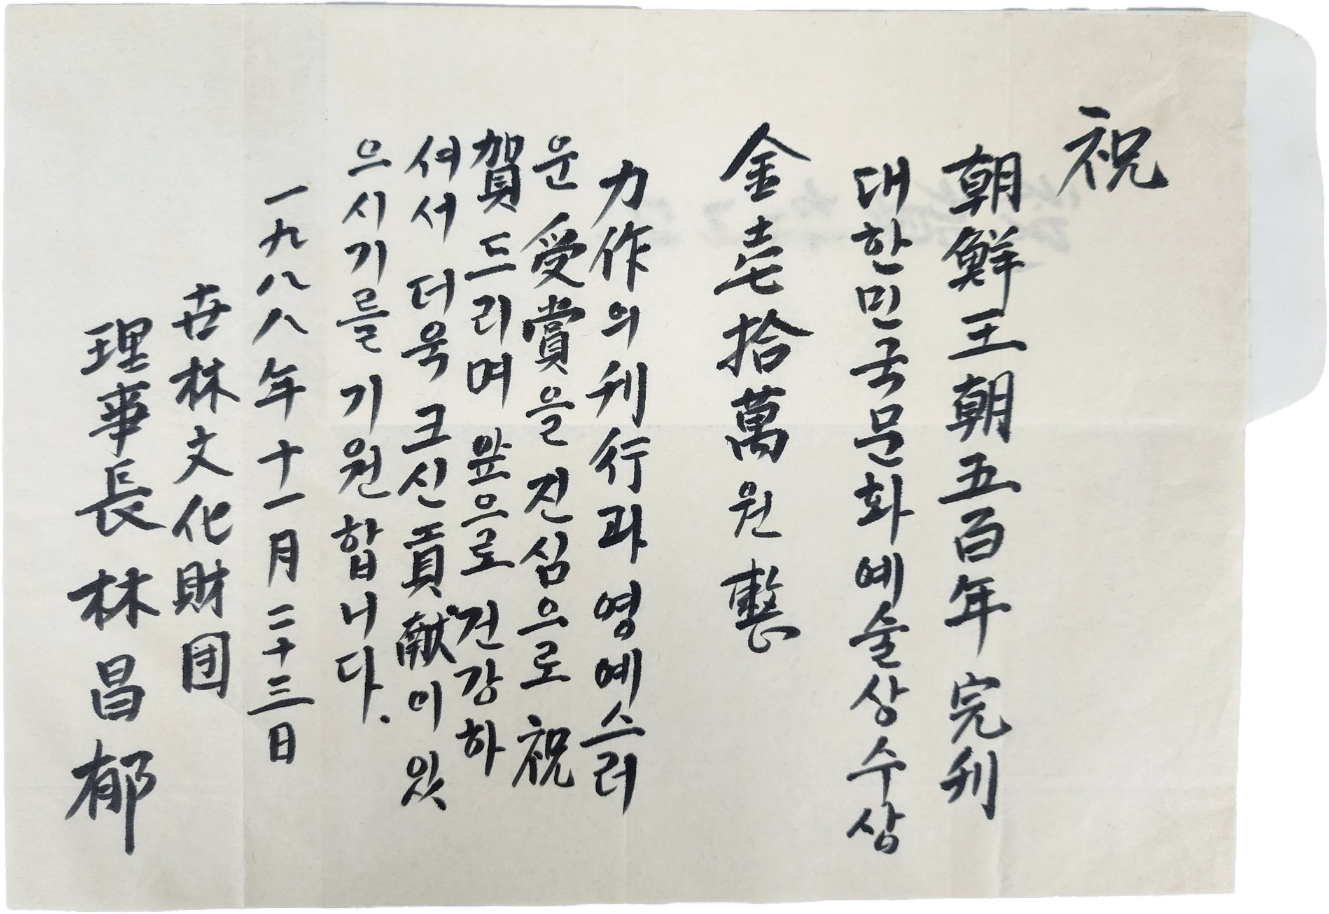 祝
朝鮮王朝五百年 完刊
대한민국문화예술상수상
金壱拾萬원整
力作의 刊行과 영예스러
운 受賞을 진심으로 祝
賀드리며 앞으로 건강하
셔서 더욱 크신 貢献이 있
으시기를 기원합니다.
一九八八年 十一月 二十三日
卋林文化財団
理事長 林昌郁